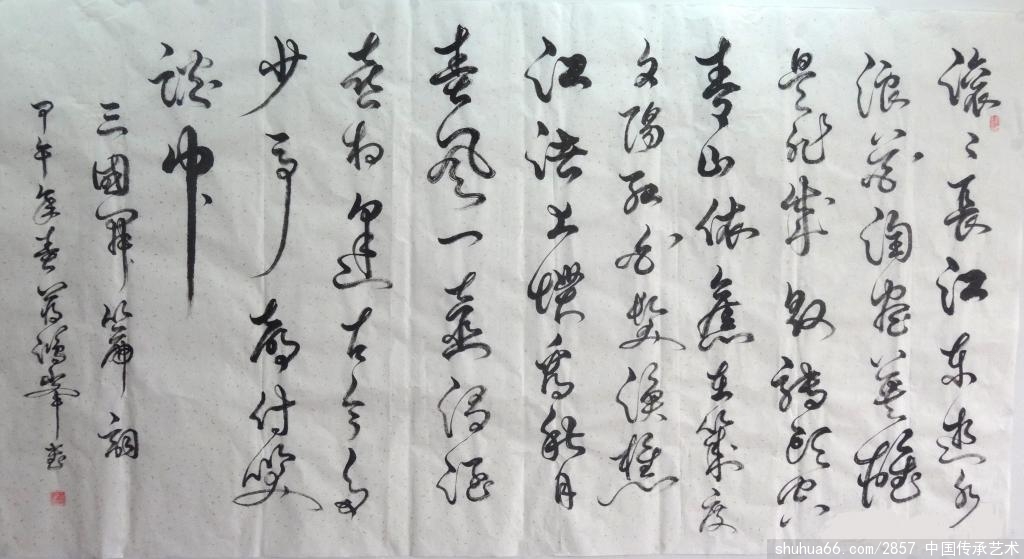 滚々長江东逝水
浪花淘盡英雄
是非成敗轉頭空
青山依舊在幾度
夕陽红白髮渔樵
江渚上慣看秋月
春風一壶濁酒
喜相逢古今多
少事都付笑
談中
三國開篇詞
甲午年春
shuhua66.com/2857 中国传承艺术